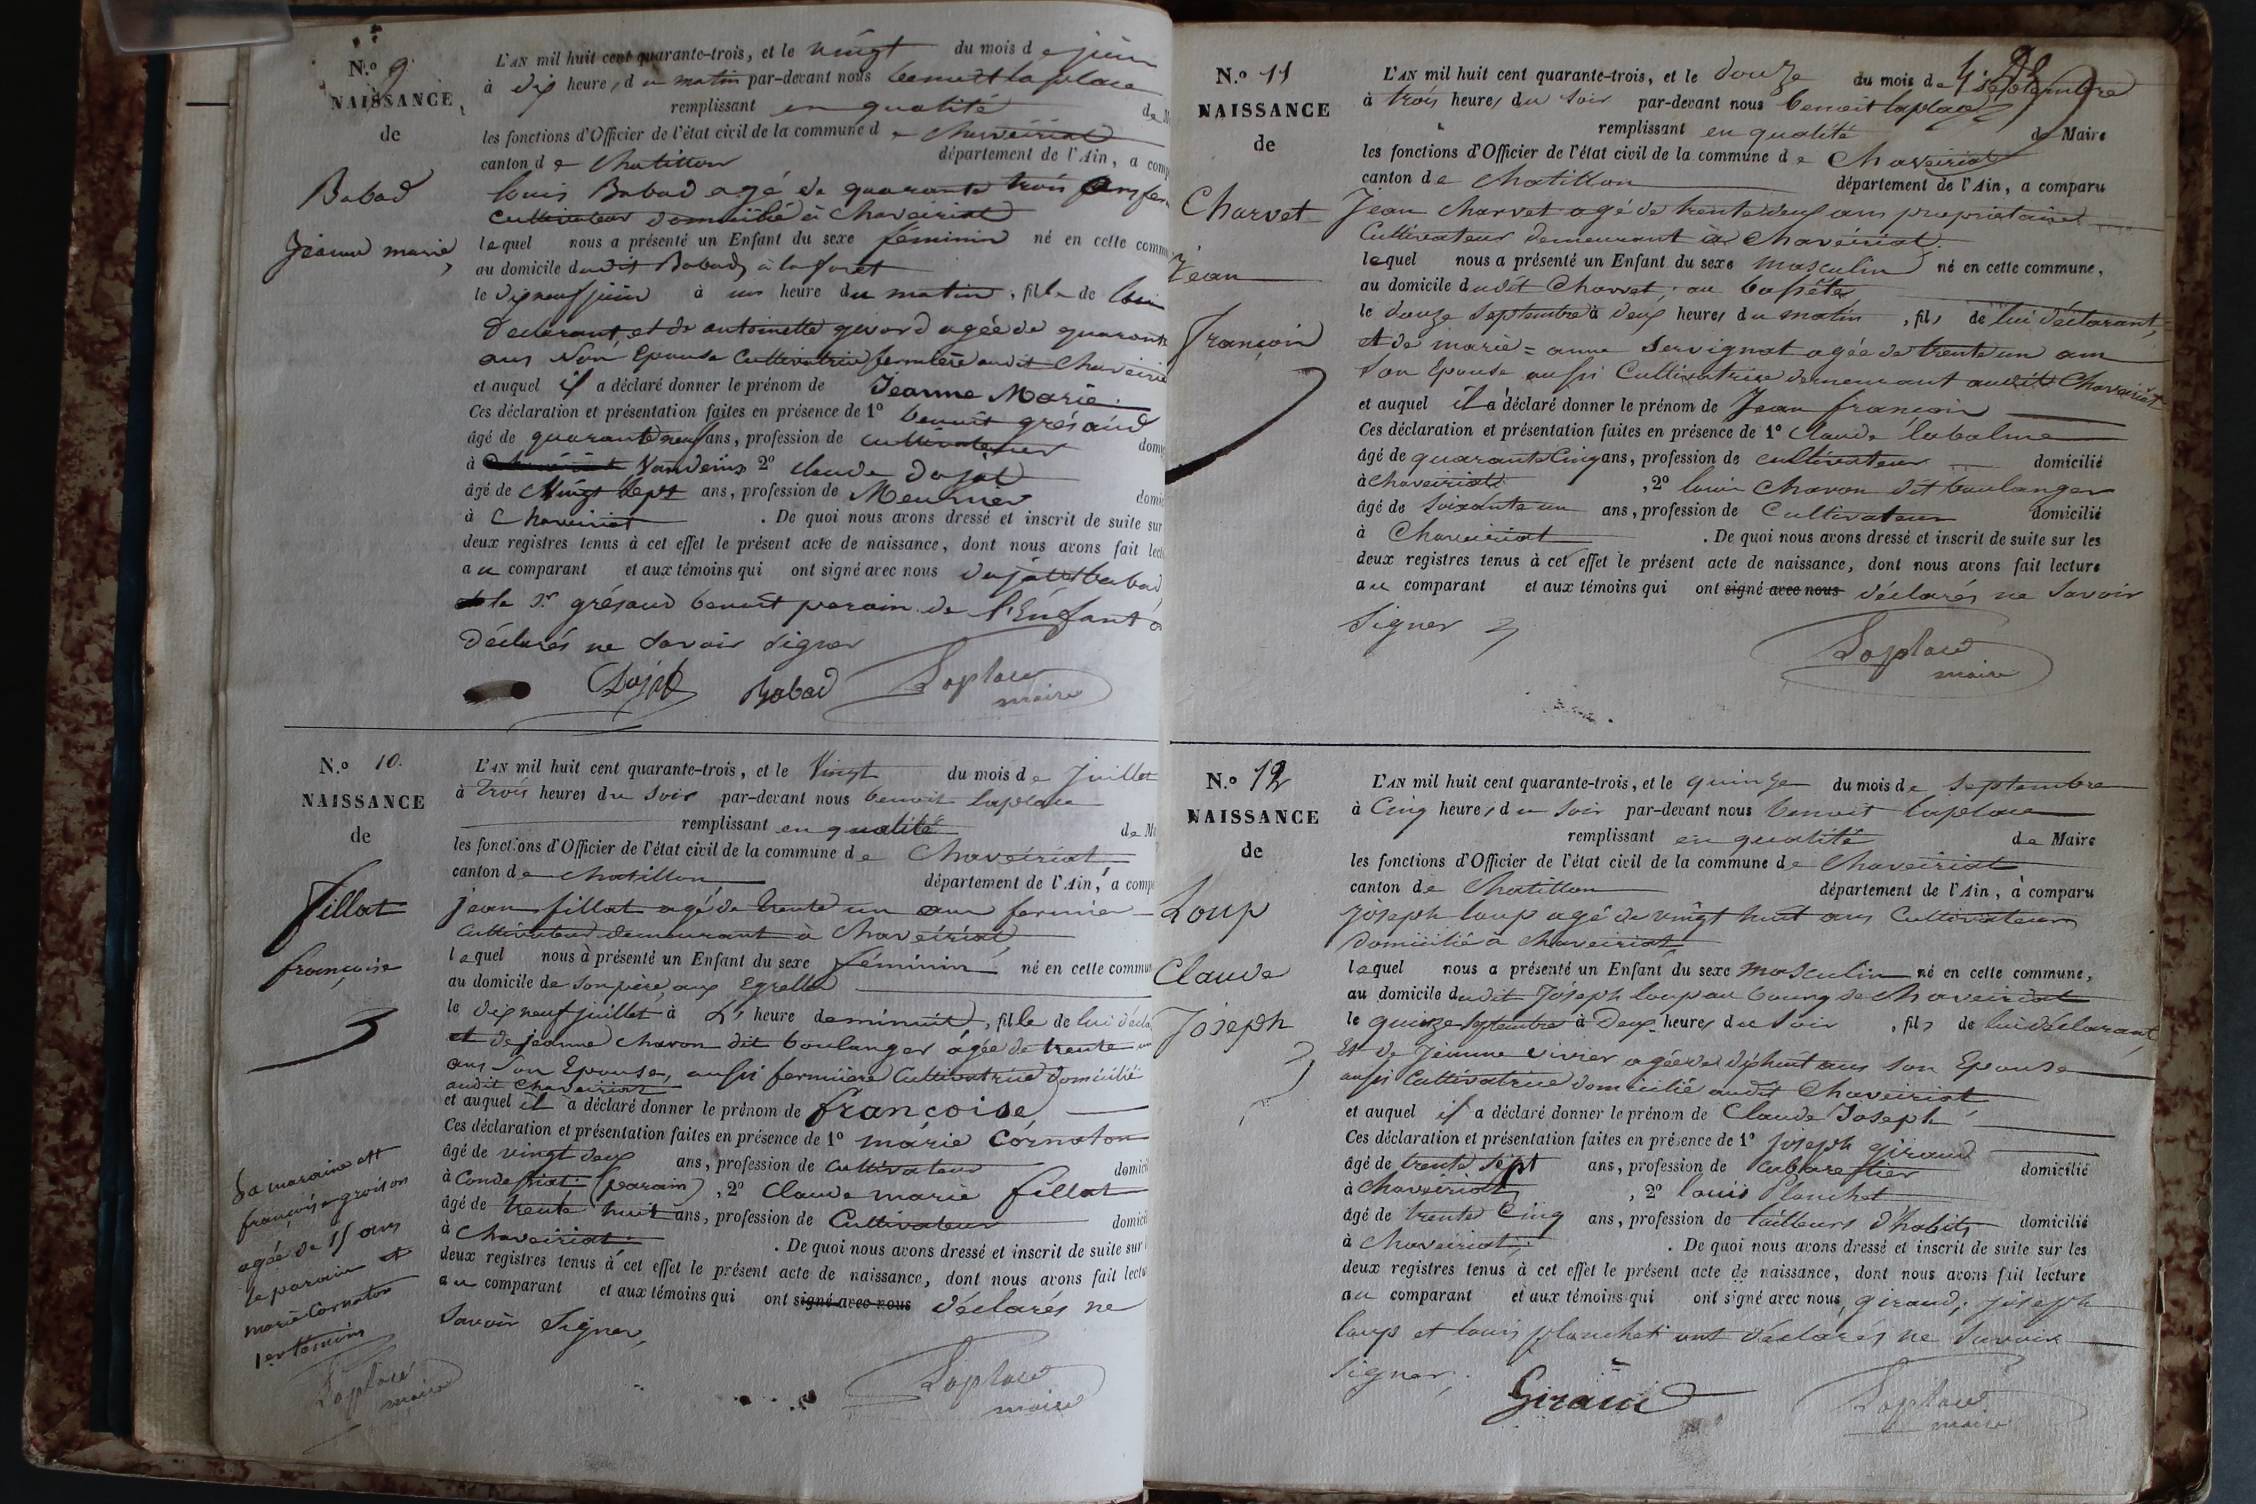 N.º 9
NAISSANCE
de
Babad
Jeanne marie
L'AN mil huit cent quarante-trois, et le vingt du mois de juin
à dix heures du matin par-devant nous benoit laplace
remplissant en qualité de
les fonctions d'Officier de l'état civil de la commune de Chaveiriat
canton de Chatillon département de l'Ain, a comp
louis Babad agé de quarante trois ans
Cultivateur domicilié à Chaveiriat
lequel nous a présenté un Enfant du sexe féminin né en cette comm
au domicile dudit Babad, à la foret
le dix neuf juin à un heure du matin, fille de lui
Déclarant, et de antoinette givord agée de quarante
ans son Epouse Cultivatrice fermière audit Chaveiria
et auquel il a déclaré donner le prénom de Jeanne Marie.
Ces déclaration et présentation faites en présence de 1º benoit grésaud
âgé de quarante neuf ans, profession de cultivateur domi
à Vandeins 2º claude dujat
âgé de Vingt Sept ans, profession de Meunier domi
à Chaveiriat . De quoi nous avons dressé et inscrit de suite sur
deux registres tenus à cet effet le présent acte de naissance, dont nous avons fait lect
au comparant et aux témoins qui ont signé avec nous dujat babad
le Sr grésaud benoit parain de l'Enfant a
déclarés ne Savoir Signer
Dujat Babad Laplace
maire
N.º 10.
NAISSANCE
de
fillat
françoise
La maraine est
françoise groison
agée de 15 ans
le parain est
marie Cornaton
1er témoin
Laplace
maire
L'AN mil huit cent quarante-trois, et le Vingt du mois de Juillet
à trois heures du Soir par-devant nous benoit laplace
remplissant en qualité de M
les fonctions d'Officier de l'état civil de la commune de Chaveiriat
canton de Chatillon département de l'Ain, a comp
jean fillat agé de trente un ans fermier
Cultivateur demeurant à Chaveiriat
lequel nous a présenté un Enfant du sexe féminin né en cette commun
au domicile de son père, aux Egrelles
le dix neuf juillet à L' heure de minuit, fille de lui décla
et de jeanne chavon dit boulanger agée de trente un
ans Son Epouse, aussi fermière Cultivatrice domicilié
audit Chaveiriat
et auquel il a déclaré donner le prénom de françoise
Ces déclaration et présentation faites en présence de 1º marie Cornaton
âgé de vingt deux ans, profession de Cultivateur domici
à Condessiat (parain), 2º Claude marie fillat
âgé de trente huit ans, profession de Cultivateur domici
à Chaveiriat . De quoi nous avons dressé et inscrit de suite sur
deux registres tenus à cet effet le présent acte de naissance, dont nous avons fait lectu
au comparant et aux témoins qui ont signé avec nous déclarés ne
Savoir Signer,
Laplace
maire
N.º 11
NAISSANCE
de
Charvet
Jean
françois
L'AN mil huit cent quarante-trois, et le douze du mois de septembre
à trois heures du Soir par-devant nous benoit laplace
remplissant en qualité de Maire
les fonctions d'Officier de l'état civil de la commune de Chaveiriat
canton de Chatillon département de l'Ain, a comparu
Jean Charvet agé de trente deux ans propriétaire
Cultivateur demeurant à Chaveiriat.
lequel nous a présenté un Enfant du sexe masculin né en cette commune,
au domicile dudit Charvet, au
le douze Septembre à deux heures du matin, fils de lui déclarant,
et de marie = anne Servignat agée de trente un ans
Son Epouse aussi Cultivatrice demeurant audit Chaveiriat
et auquel il a déclaré donner le prénom de Jean françois
Ces déclaration et présentation faites en présence de 1º Claude labalme
âgé de quarante Cinq ans, profession de cultivateur domicilié
à Chaveiriat , 2º louis Chavon dit boulanger
âgé de Soixante un ans, profession de Cultivateur domicilié
à Chaveiriat . De quoi nous avons dressé et inscrit de suite sur les
deux registres tenus à cet effet le présent acte de naissance, dont nous avons fait lecture
au comparant et aux témoins qui ont signé avec nous déclarés ne Savoir
Signer
Laplace
maire
N.º 12
NAISSANCE
de
Loup
Claude
Joseph
L'AN mil huit cent quarante-trois, et le quinze du mois de Septembre
à Cinq heures du Soir par-devant nous benoit laplace
remplissant en qualité de Maire
les fonctions d'Officier de l'état civil de la commune de Chaveiriat
canton de Chatillon département de l'Ain, a comparu
joseph loup agé de vingt huit ans Cultivateur
Domicilié à Chaveiriat.
lequel nous a présenté un Enfant du sexe masculin né en cette commune,
au domicile dudit Joseph loup au bourg de Chaveiriat
le quinze Septembre à Deux heures du Soir , fils de lui déclarant
Et de Jeanne vivier agée de dixhuit ans son Epouse
aussi Cultivatrice domicilié audit Chaveiriat
et auquel il a déclaré donner le prénom de Claude Joseph
Ces déclaration et présentation faites en présence de 1º Joseph giraud
âgé de trente Sept ans, profession de Cabaretier domicilié
à Chaveiriat , 2º louis Planchet
âgé de trente Cinq ans, profession de tailleurs d'habits domicilié
à Chaveiriat; . De quoi nous avons dressé et inscrit de suite sur les
deux registres tenus à cet effet le présent acte de naissance, dont nous avons fait lecture
au comparant et aux témoins qui ont signé avec nous, giraud, joseph
loup et louis planchet ont déclarés ne Savoir
Signer.
Giraud Laplace
maire